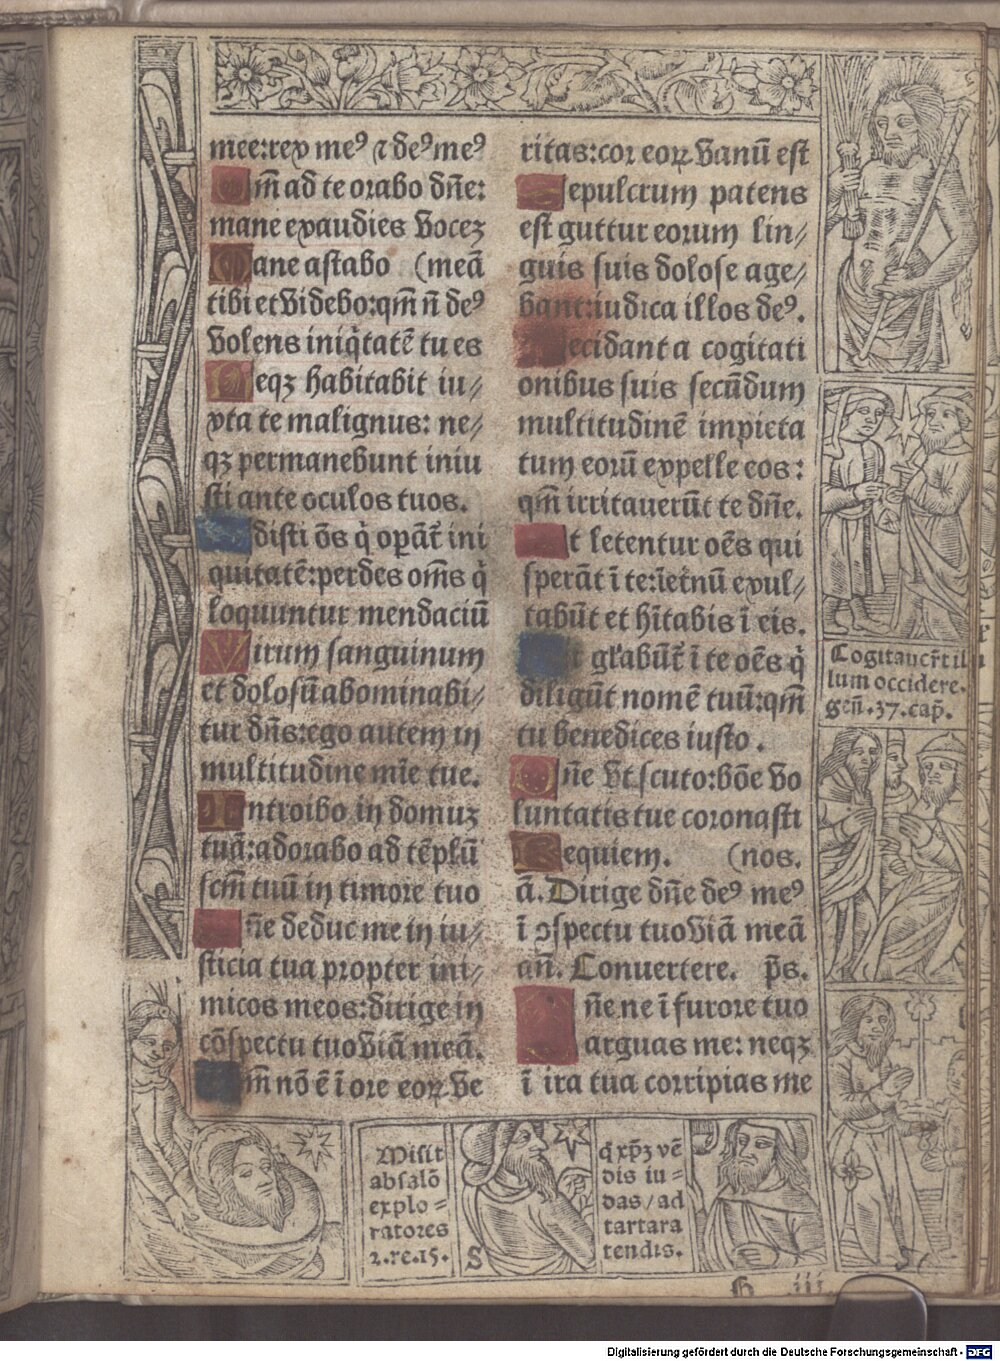 mee:rex me⁹ ⁊ de⁹ me⁹
Qm̄ ad te orabo dn̄e:
mane exaudies vocez
Mane astabo (meā
tibi et videbo:qm̄ n̄ de⁹
volens iniq̄tatē tu es
Neqȝ habitabit iu⸗
xta te malignus: ne⸗
qȝ permanebunt iniu
sti ante oculos tuos.
Odisti ōs q̇ oꝑāt̄ ini
quitatē:perdes om̄s q̇
loquuntur mendaciū
Virum sanguinum
et dolosū abominabi⸗
tur dn̄s:ego autem in
multitudine mīe tue.
Introibo in domuz
tuā:adorabo ad tēplū
scm̄ tuū in timore tuo
Dn̄e deduc me in iu⸗
sticia tua propter ini⸗
micos meos:dirige in
cōspectu tuo viā meā.
Qm̄ nō ē ī ore eoꝝ ve
ritas:cor eoꝝ vanū est
Sepulcrum patens
est guttur eorum lin⸗
guis suis dolose age⸗
bant:iudica illos de⁹.
Decidant a cogitati
onibus suis secūdum
multitudinē impieta
tum eorū expelle eos:
qm̄ irritauerūt te dn̄e.
Et letentur oēs qui
sperāt ī te:ī eter̄nū exul⸗
tabūt et hītabis ī eis.
Et gl̄abūt̄ ī te oēs q̇
diligūt nomē tuū:qm̄
tu benedices iusto.
Dn̄e vt scuto:bōe vo
luntatis tue coronasti
Requiem. (nos.
ā. Dirige dn̄e de⁹ me⁹
ī ꝯspectu tuo viā meā
an̄. Conuertere. p̄s.
Dn̄e ne ī furore tuo
arguas me: neqȝ
ī ira tua corripias me
Cogitauer̄t il
lum occidere.
gen̄.37.cap̄.
Misit
absalō
explo⸗
ratores
2.re.15.
S
q̇ xp̄ȝ vē
dis iu⸗
das/ad
tartara
tendis.
h iii
Digitalisierung gefördert durch die Deutsche Forschungsgemeinschaft - DFG